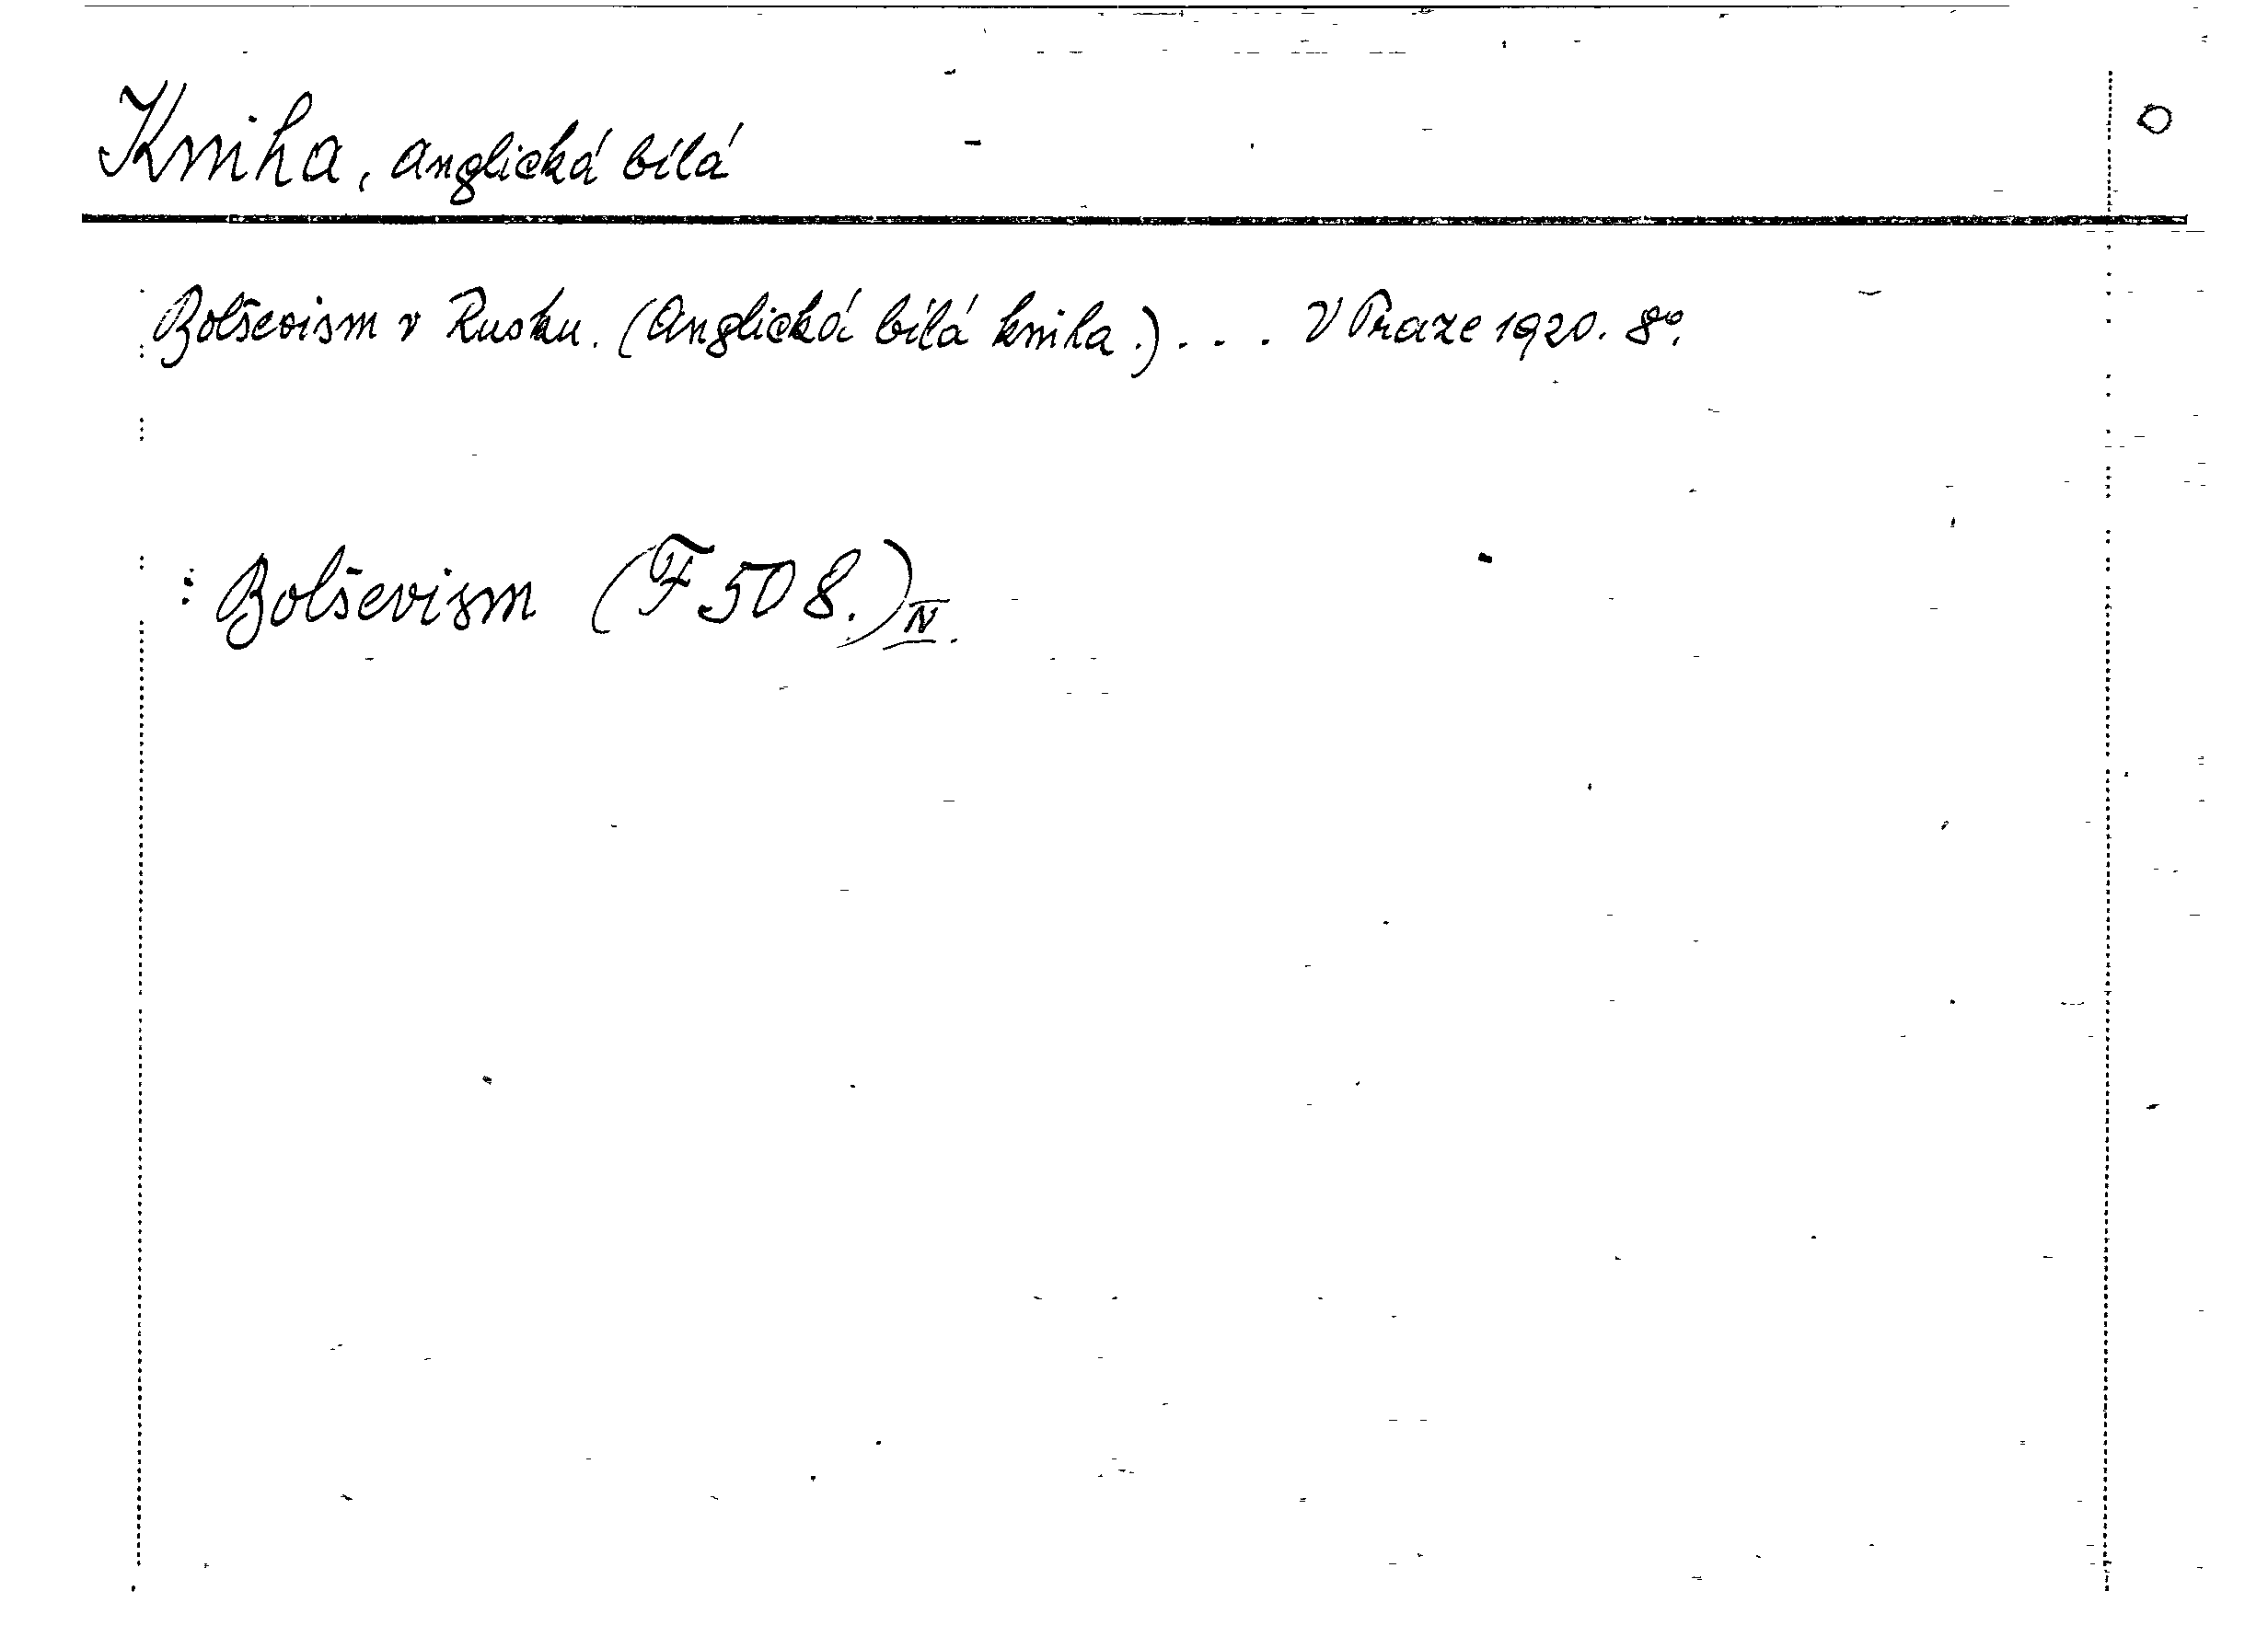 Kniha, anglická bílá
Bolševism v Rusku. (Anglická bílá kniha.) . . . V Praze 1920. 8º.
: Bolševism (F 508.) IV.